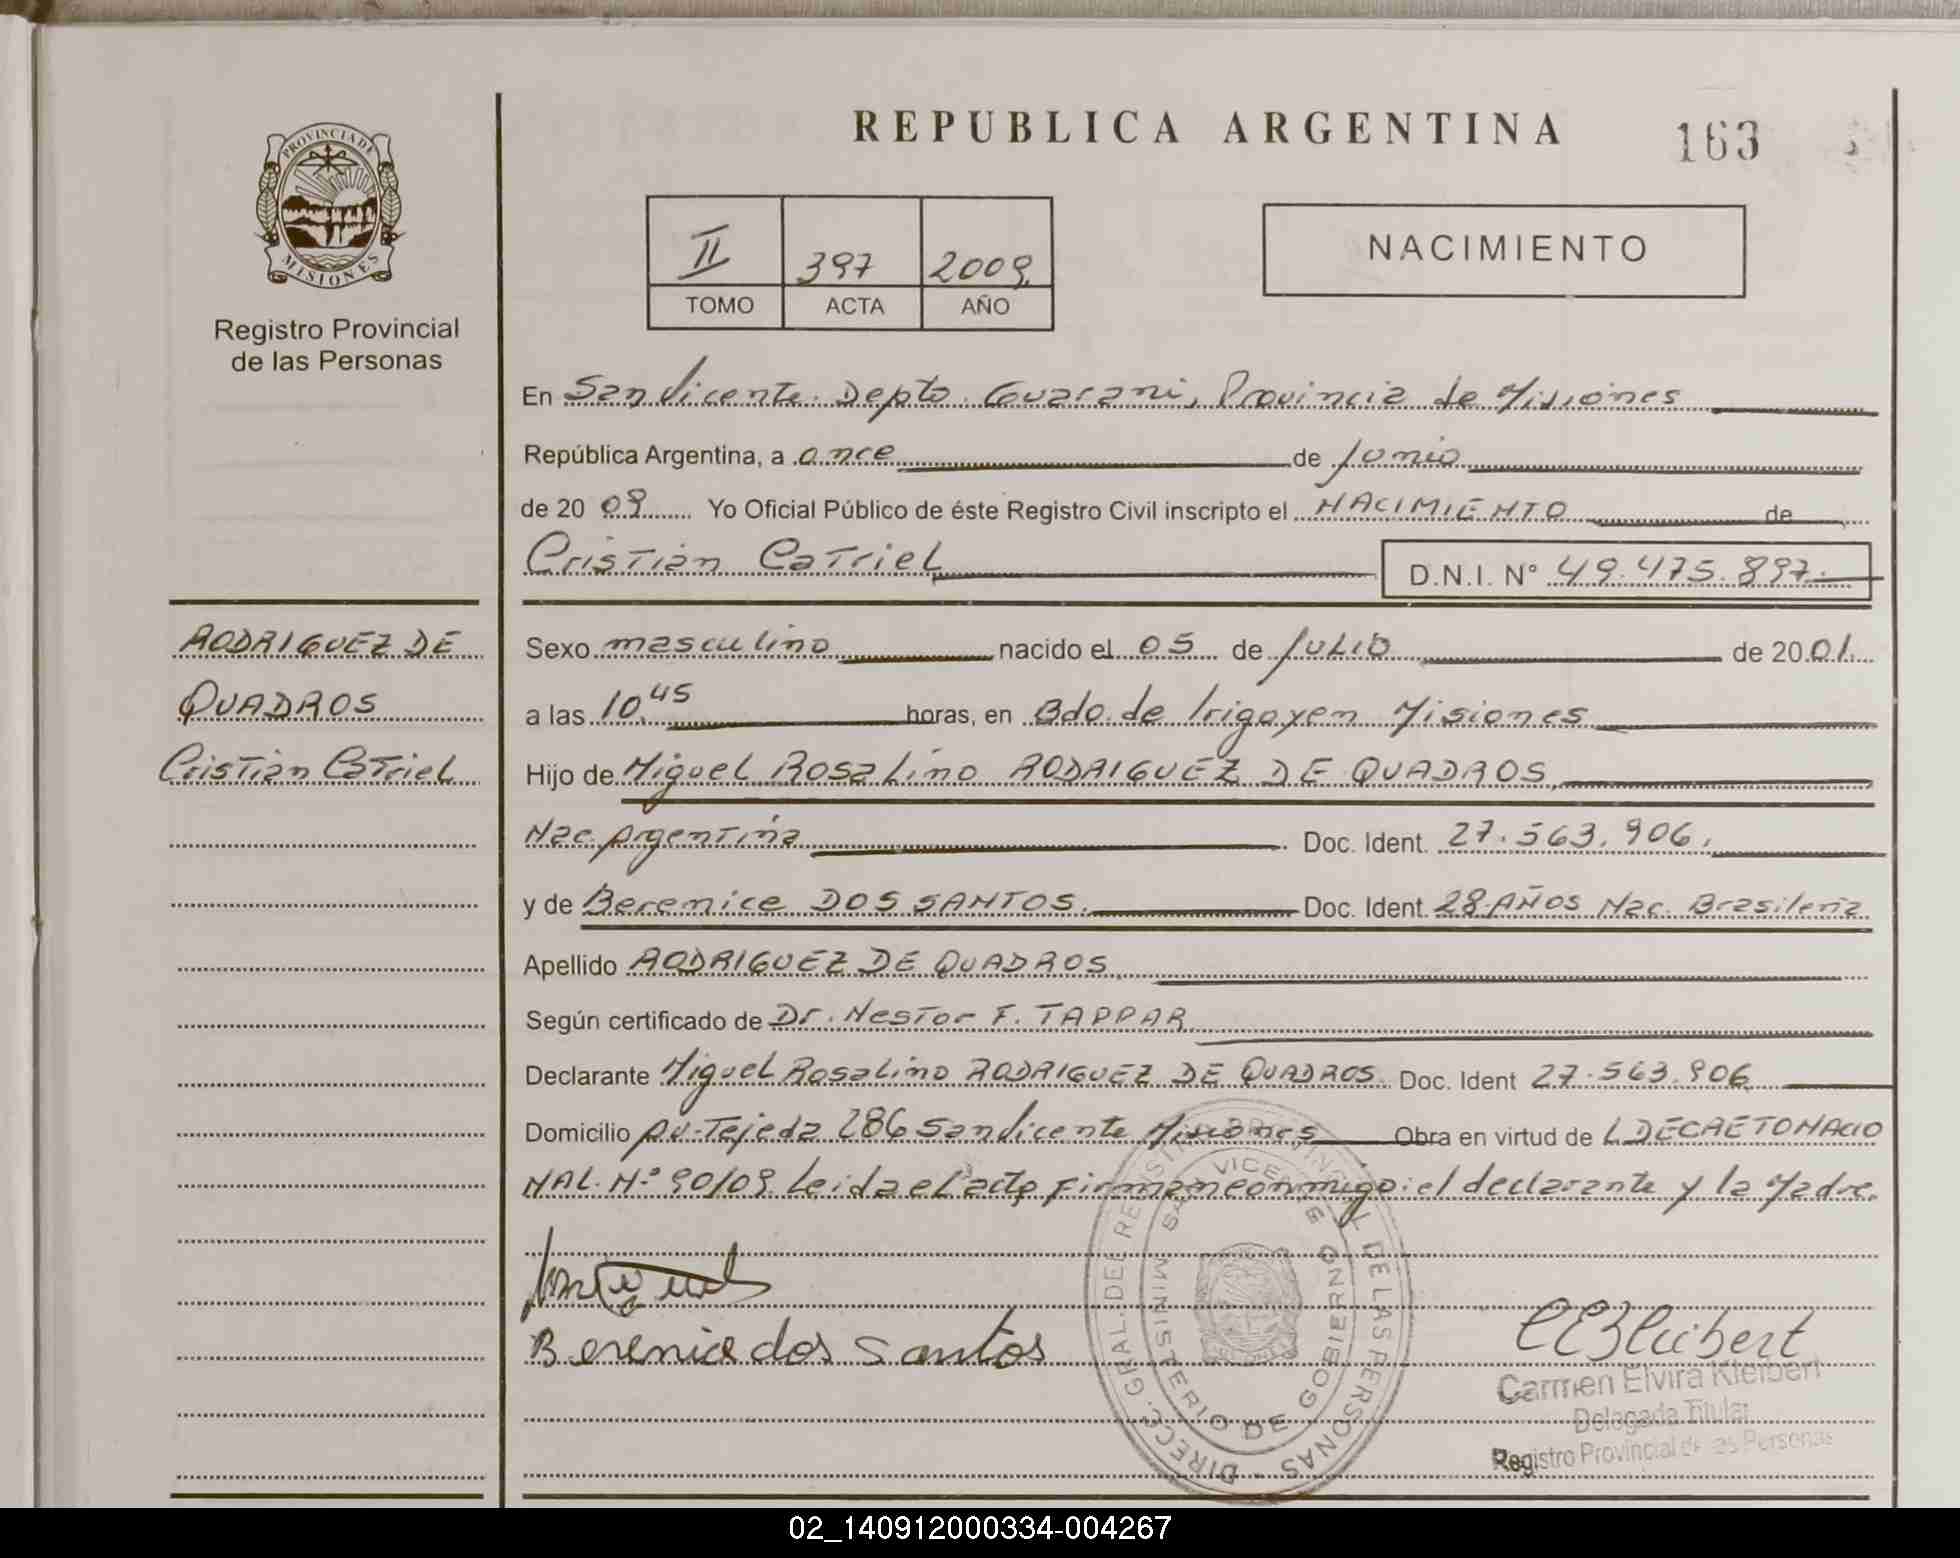 REPUBLICA ARGENTINA
163
PROVINCIA DE MISIONES
Registro Provincial
de las Personas
II 397 2009
TOMO ACTA AÑO
NACIMIENTO
En San Vicente Depto. Guarani, Provincia de Misiones
República Argentina, a once de Junio
de 2009 Yo Oficial Público de éste Registro Civil inscripto el NACIMIENTO de
Cristian Catriel D.N.I. N° 49.475.897.
RODRIGUEZ DE
QUADROS
Cristian Catriel
Sexo masculino nacido el 05 de JULIO de 2001.
a las 10.45 horas, en Bdo. de Irigoyen Misiones
Hijo de Miguel Rosalino RODRIGUEZ DE QUADROS
Nac. Argentina Doc. Ident. 27.563.906.
y de Berenice DOS SANTOS. Doc. Ident. 28 AÑOS Nac. Brasileña
Apellido RODRIGUEZ DE QUADROS
Según certificado de Dr. Nestor F. TAPPAR
Declarante Miguel Rosalino RODRIGUEZ DE QUADROS. Doc. Ident 27.563.906
Domicilio Av. Tejeda 286 San Vicente Misiones Obra en virtud de L DECRETO NACIO
NAL. N° 90/09. Leida el acta firman conmigo: el declarante y la Madre.
Berenice dos Santos
DIRECC. GRAL. DEL REGISTRO PROVINCIAL DE LAS PERSONAS
SAN VICENTE
MINISTERIO DE GOBIERNO
CEKleibert
Carmen Elvira Kleibert
Delegada Titular
Registro Provincial de las Personas
02_140912000334-004267